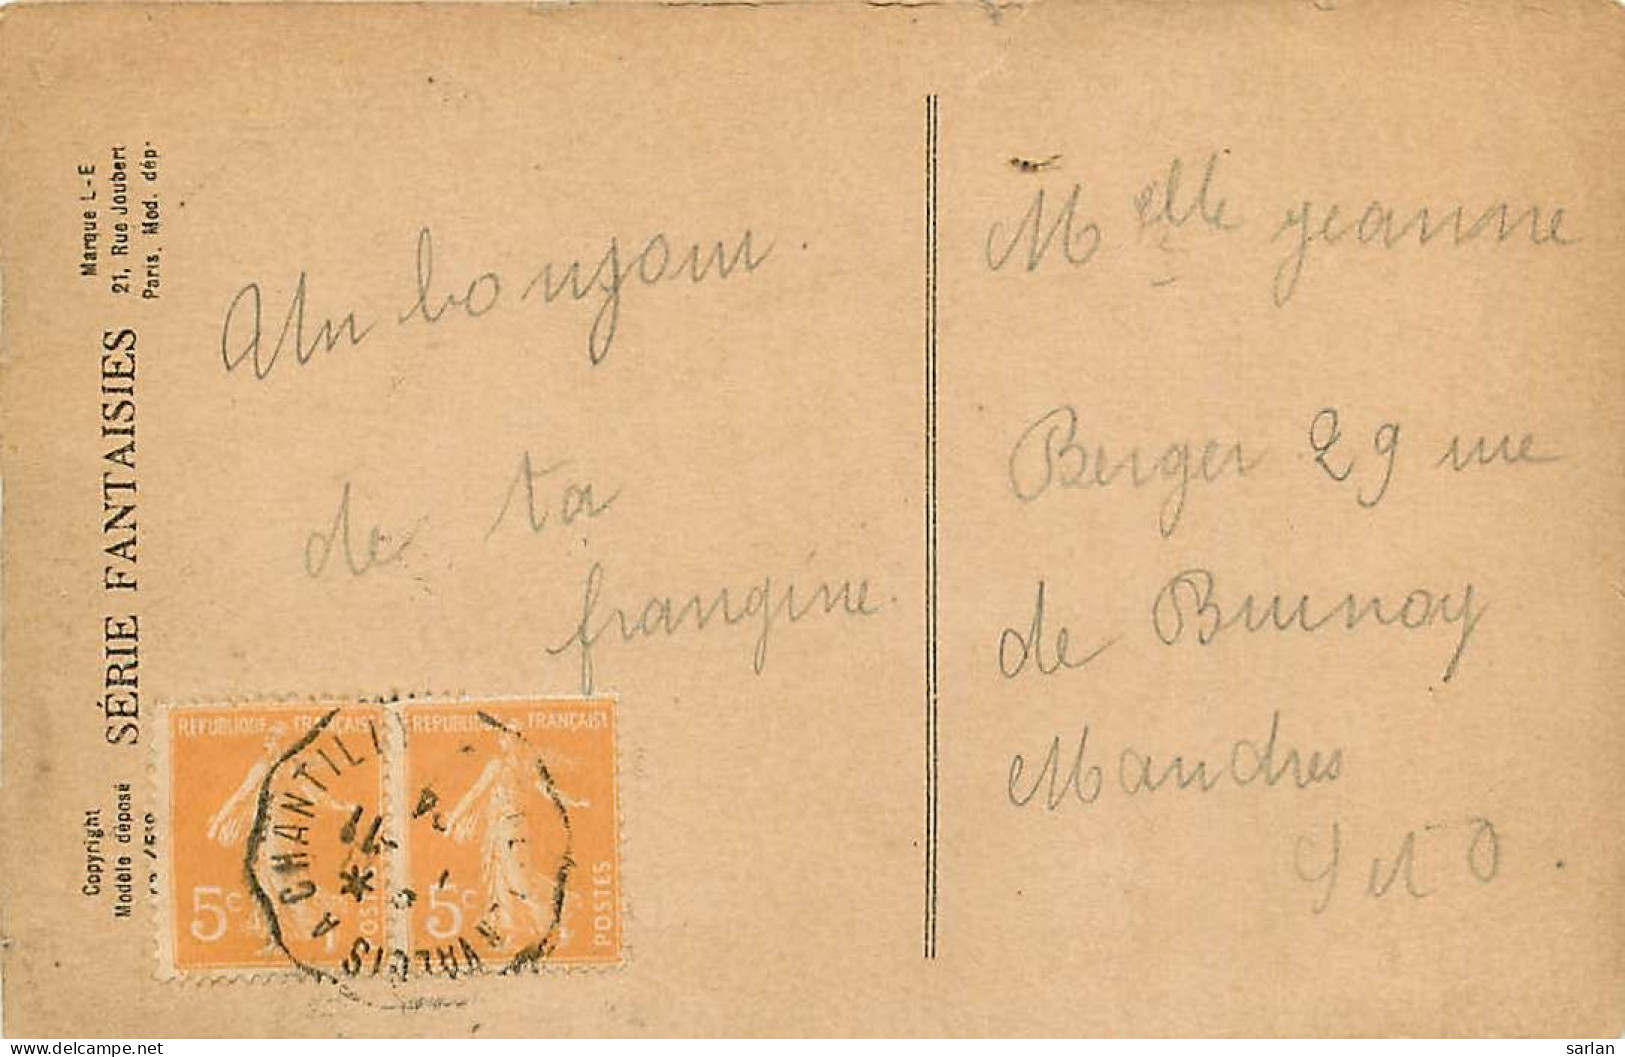 Marque L-E
21, Rue Joubert
Paris. Mod. dép.
SÉRIE FANTAISIES
Copyright
Modèle déposé
Un bonjour.
de ta
frangine.
Melle Jeanne
Berger 29 rue
de Brunoy
Mandres
S et O.
REPUBLIQUE FRANÇAISE
5c
POSTES
REPUBLIQUE FRANÇAISE
5c
POSTES
VALOIS A CHANTILLY
delcampe.net
sarlan